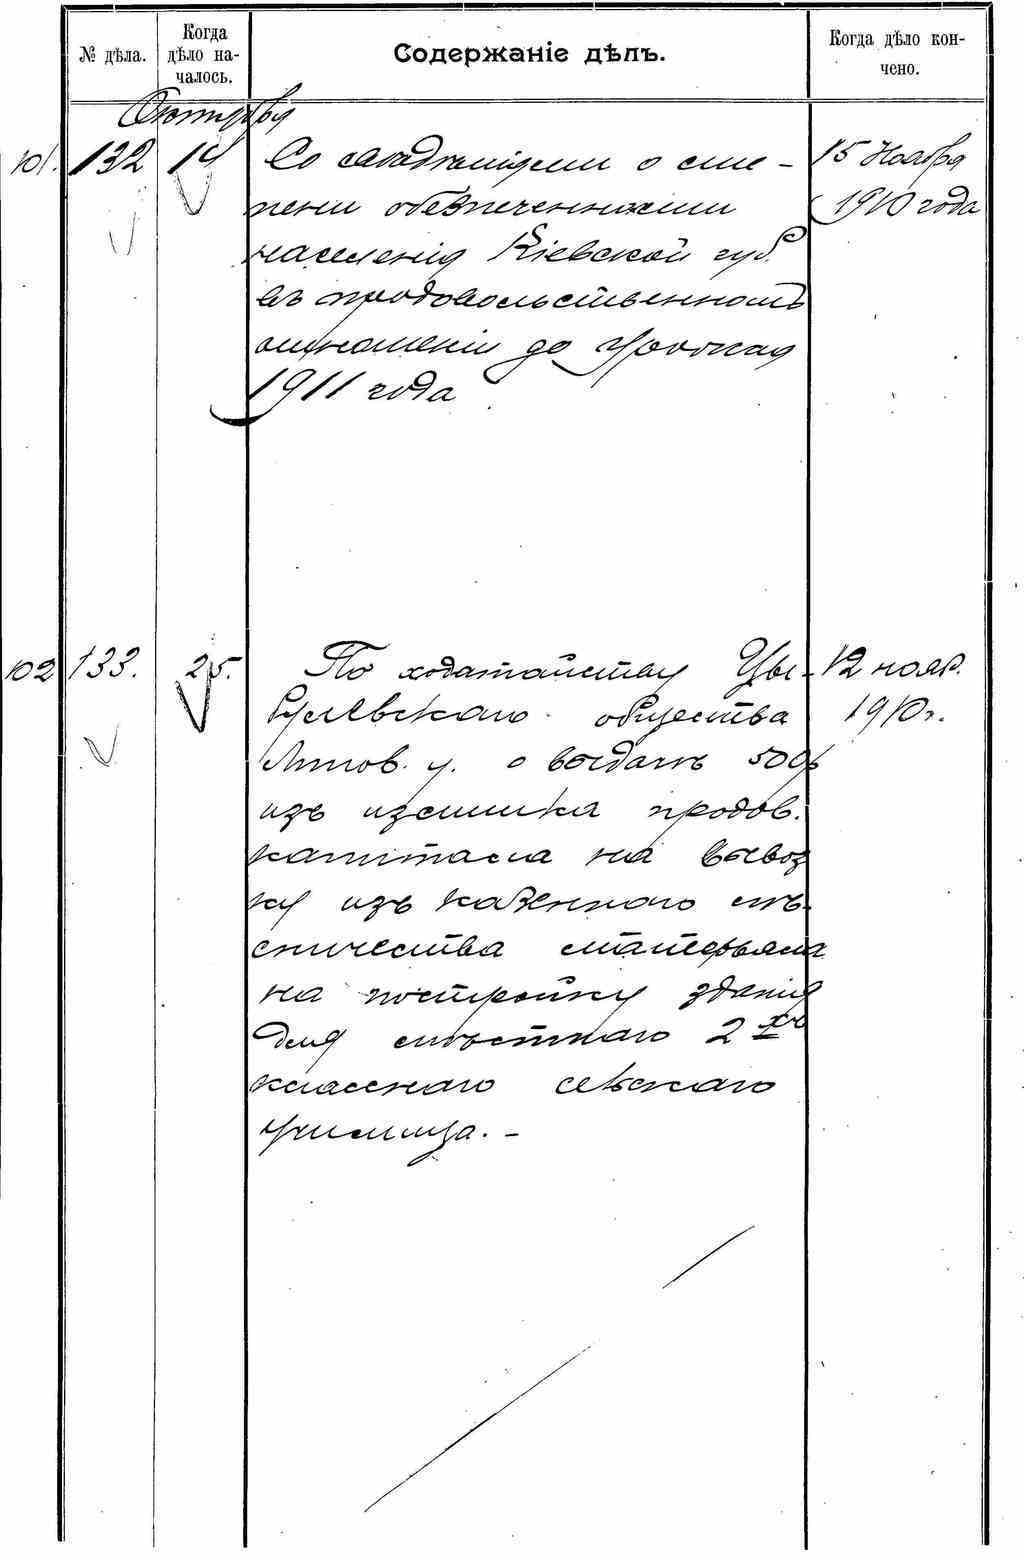 № дѣла.
Когда дѣло на-
чалось.
Содержаніе дѣлъ.
Когда дѣло кон-
чено.
Октября
101. 132 14 Со свѣдѣніями о сте-
пени обезпеченности
населенія Кіевской губ.
въ продовольственномъ
отношеніи до урожая
1911 года
15 Ноября
1910 года
102 133. 25. По ходатайству Цы-
булевскаго общества
Липов. у. о выдачѣ 500р
изъ излишка продов.
капитала на вывоз
ку изъ казеннаго лѣ-
сничества матерьяла
на постройку зданія
для мѣстнаго 2хъ
класснаго сельскаго
училища. -
12 нояб.
1910г.